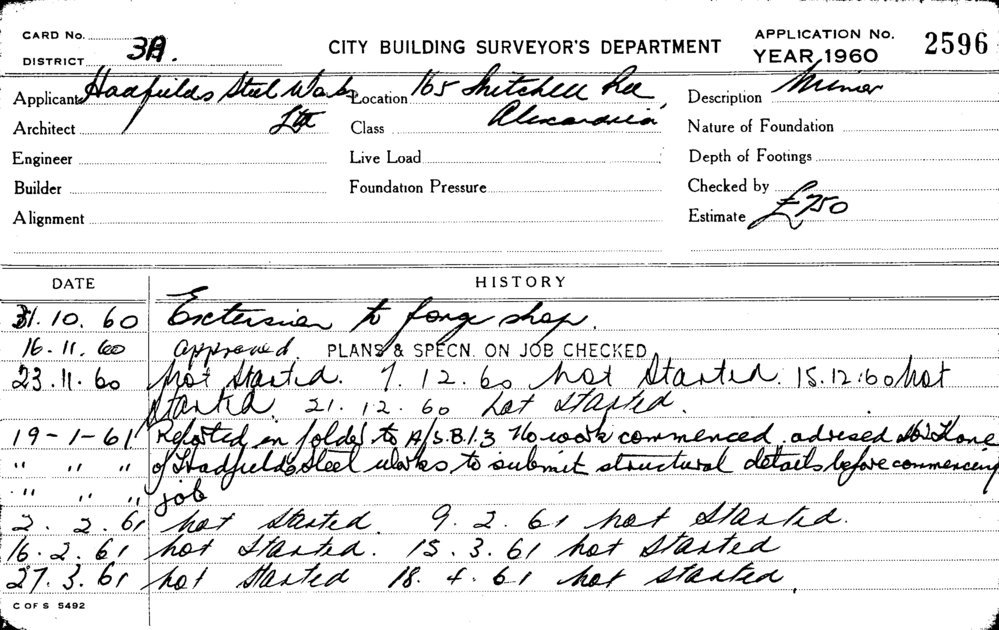 CARD No.
DISTRICT 3A.
CITY BUILDING SURVEYOR'S DEPARTMENT
APPLICATION No. 2596
YEAR 1960
Applicant Hadfields Steel Works Location 165 Mitchell Rd, Description Minor
Architect Ltd Class Alexandria Nature of Foundation
Engineer Live Load Depth of Footings
Builder Foundation Pressure Checked by
Alignment Estimate £750
DATE HISTORY
31.10.60 Extension to forge shop.
16.11.60 approved. PLANS & SPECN. ON JOB CHECKED
23.11.60 not started. 7.12.60 not started. 15.12.60 not
started. 21.12.60 not started.
19-1-61 Reported in folder to A/S.B.I.3 No work commenced, advised Mr
" " " of Hadfields Steel works to submit structural details before commencing
" " " job
2.2.61 not started 9.2.61 not started.
16.2.61 not started. 15.3.61 not started
27.3.61 not started 18.4.61 not started.
C OF S 5492